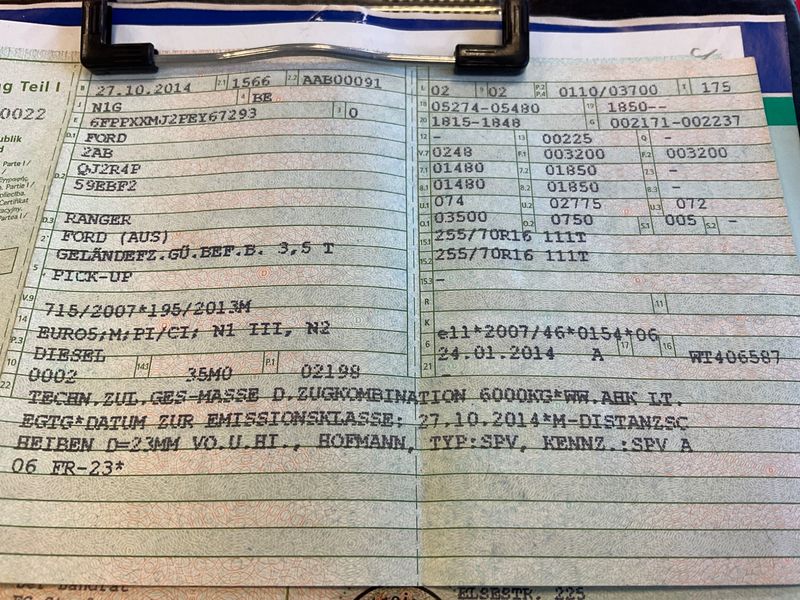 ng Teil I
0022
publik
B 27.10.2014 2.1 1566 2.2 AAB00091
J N1G 4 BE
E 6FPPXXMJ2PEY67293 3 0
D.1 FORD
2AB
D.2 QJ2R4P
59EBF2
D.3 RANGER
2 FORD (AUS)
GELÄNDEFZ.GÜ.BEF.B. 3,5 T
5 PICK-UP
V.9 715/2007*195/2013M
14 EURO5;M;PI/CI; N1 III, N2
P.3 DIESEL
10 0002 14.1 35M0 P.1 02198
L 02 9 02 P.2 P.4 0110/03700 T 175
18 05274-05480 19 1850--
20 1815-1848 G 002171-002237
12 - 13 00225 Q -
V.7 0248 F.1 003200 F.2 003200
7.1 01480 7.2 01850 7.3 -
8.1 01480 8.2 01850 8.3 -
U.1 074 U.2 02775 U.3 072
O.1 03500 O.2 0750 S.1 005 S.2 -
15.1 255/70R16 111T
15.2 255/70R16 111T
15.3 -
R 11
K e11*2007/46*0154*06
6 24.01.2014 A 17 16 WT406587
21 -
22 TECHN.ZUL.GES-MASSE D.ZUGKOMBINATION 6000KG*WW.AHK LT.
EGTG*DATUM ZUR EMISSIONSKLASSE: 27.10.2014*M-DISTANZSC
HEIBEN D=23MM VO.U.HI., HOFMANN, TYP:SPV, KENNZ.:SPV A
06 FR-23*
ELSESTR. 225